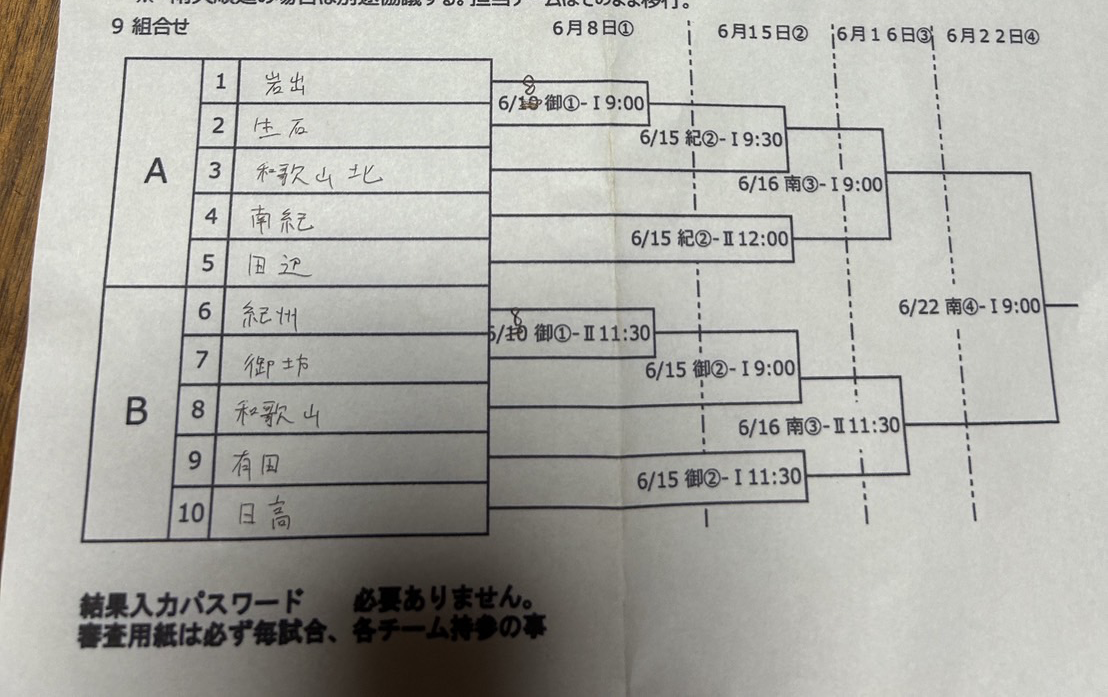 9 組合せ
6月8日① 6月15日② 6月16日③ 6月22日④
A
1 岩出
2 生石
3 和歌山北
4 南紀
5 田辺
B
6 紀州
7 御坊
8 和歌山
9 有田
10 日高
6/8 御①-Ⅰ9:00
6/15 紀②-Ⅰ9:30
6/16 南③-Ⅰ9:00
6/15 紀②-Ⅱ12:00
6/22 南④-Ⅰ9:00
6/8 御①-Ⅱ11:30
6/15 御②-Ⅰ9:00
6/16 南③-Ⅱ11:30
6/15 御②-Ⅰ11:30
結果入力パスワード 必要ありません。
審査用紙は必ず毎試合、各チーム持参の事